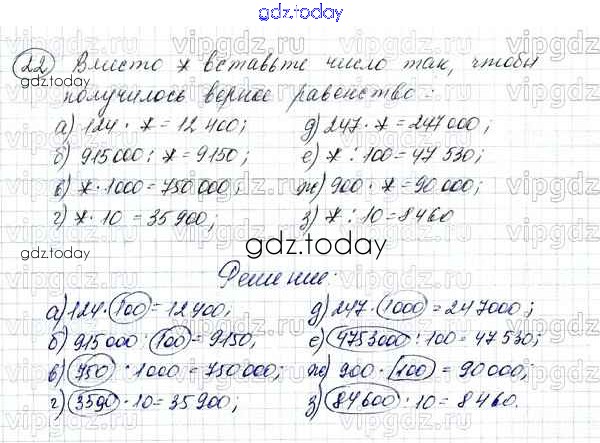 gdz.today
22 Вместо * вставьте число так, чтобы
gdz.today
получилось верное равенство:
а) 124 · * = 12 400; д) 247 · * = 247 000;
б) 915000 : * = 9150; е) * : 100 = 47 530;
в) * · 1000 = 750 000; ж) 900 · * = 90 000;
г) * · 10 = 35 900; з) * : 10 = 8460
gdz.today
Решение:
а) 124 · 100 = 12400; д) 247 · 1000 = 247000;
б) 915000 : 100 = 9150; е) 4753000 : 100 = 47 530;
в) 750 · 1000 = 750000; ж) 900 · 100 = 90000;
г) 3590 · 10 = 35900; з) 84600 : 10 = 8460.
vipgdz.ru